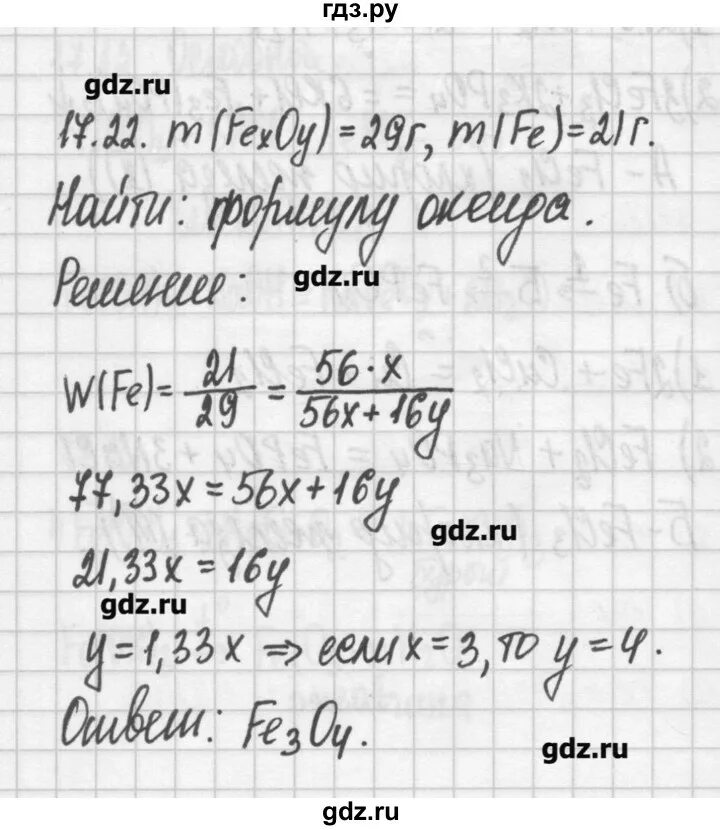 гдз.ру
gdz.ru
17.22. m(FexOy)=29г, m(Fe)=21г.
Найти: формулу оксида.
Решение:
gdz.ru
W(Fe)= 21/29 = 56·x/56x+16y
77,33x=56x+16y
gdz.ru
21,33x=16y
gdz.ru
y=1,33x ⇒ если x=3, то y=4.
Ответ: Fe3O4.
gdz.ru
gdz.ru